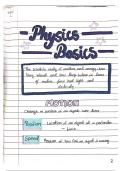 Physics
Basics
The scientific study of matter and energy, how
they interact and how they behave in terms
of motion, force and light and
electricity
MOTION
Change in position of an object over time
Position
Location of an object at a particular
time
Speed
Measure of how fast an object is moving
2